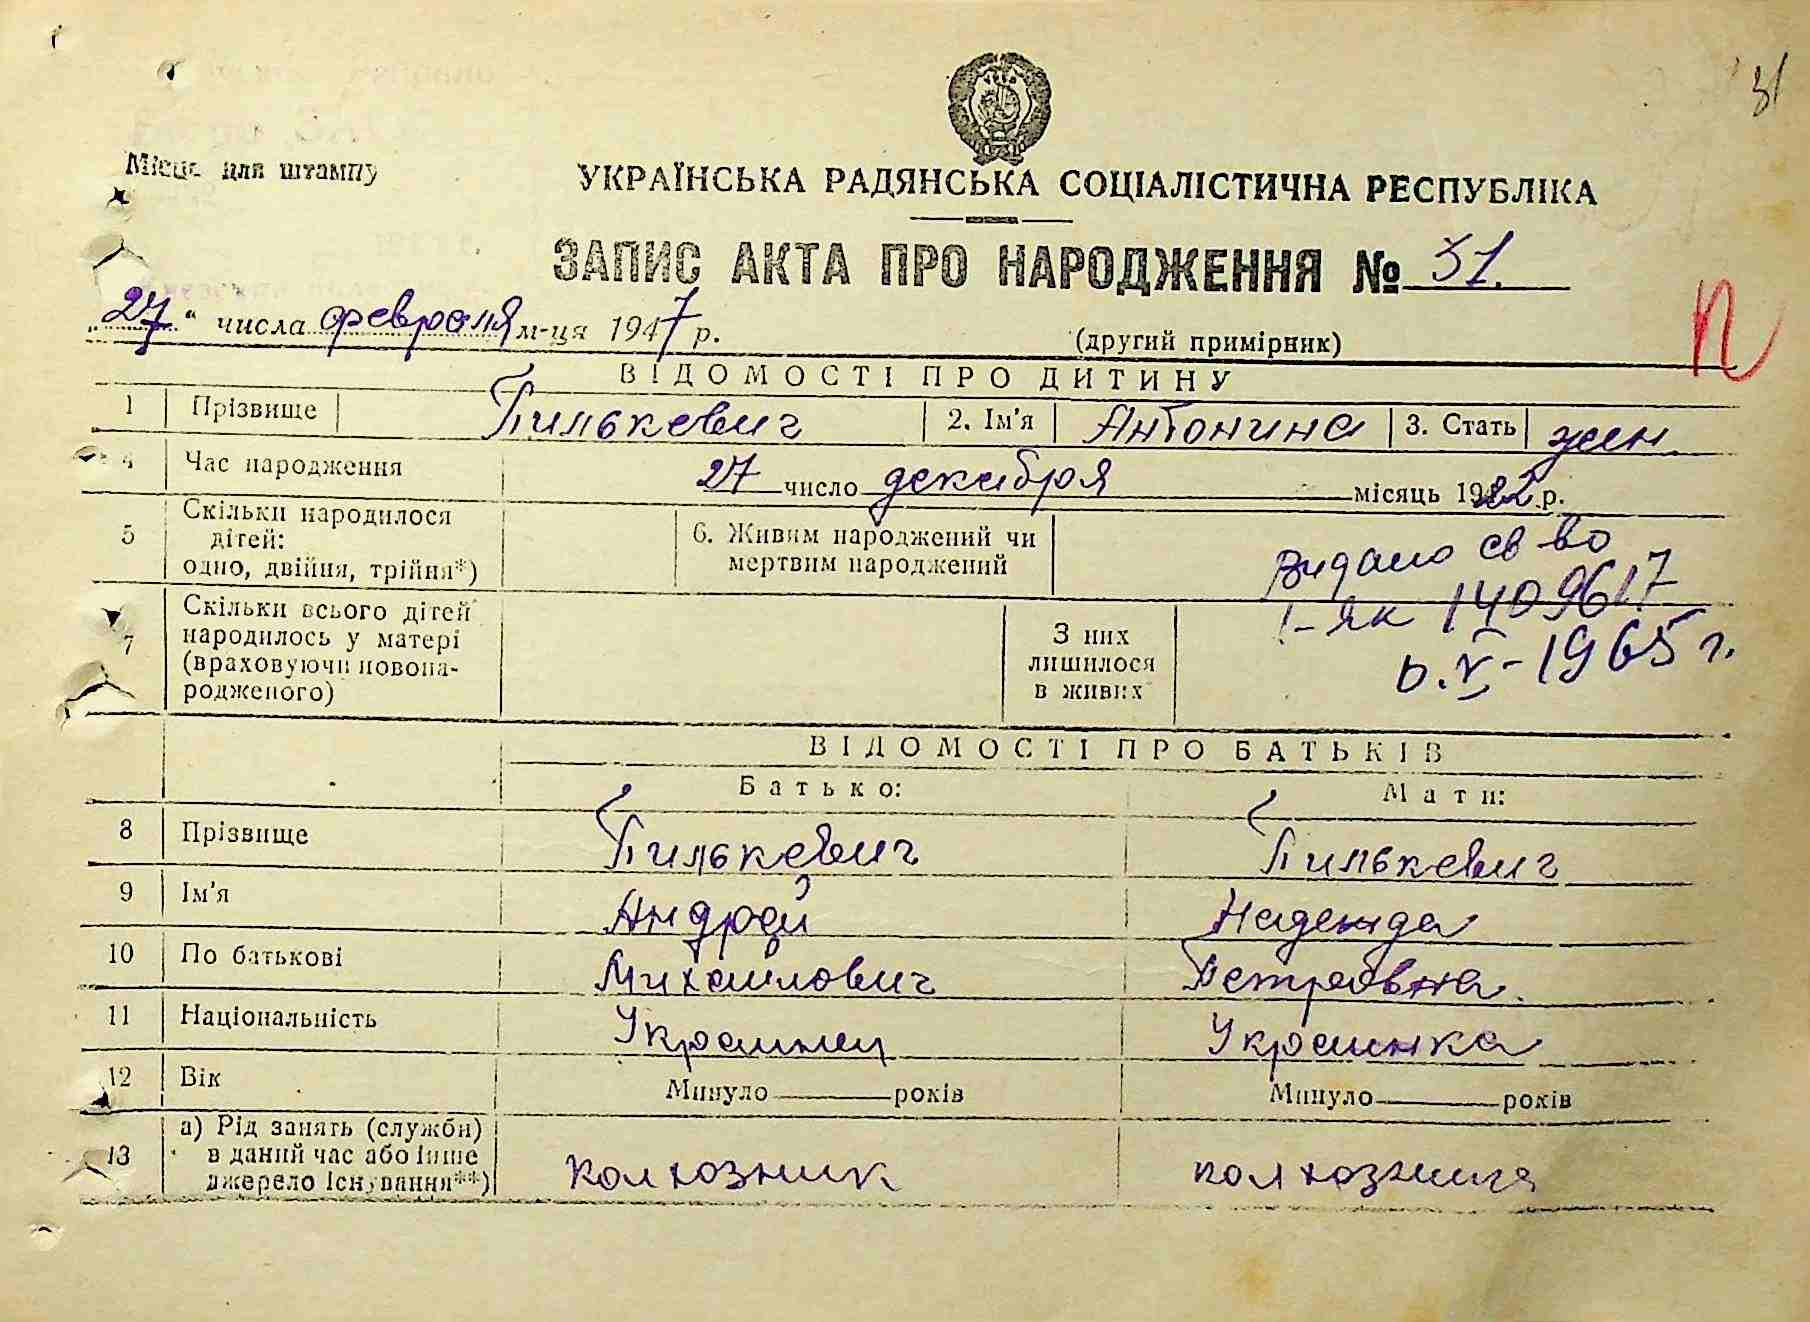 31
Місце для штампу
УКРАЇНСЬКА РАДЯНСЬКА СОЦІАЛІСТИЧНА РЕСПУБЛІКА
ЗАПИС АКТА ПРО НАРОДЖЕННЯ № 31.
„27“ числа февраля м-ця 1947 р.
(другий примірник)
П
ВІДОМОСТІ ПРО ДИТИНУ
1 Прізвище Пилькевич 2. Ім'я Антонина 3. Стать жен
4 Час народження 27 число декабря місяць 1922 р.
5 Скільки народилося
дітей:
одно, двійня, трійня*)
6. Живим народжений чи
мертвим народжений
Видано св-во
I-ЯК 1409617
V-1965 г.
7 Скільки всього дітей
народилось у матері
(враховуючи новона-
родженого)
З них
лишилося
в живих
ВІДОМОСТІ ПРО БАТЬКІВ
Батько: Мати:
8 Прізвище Пилькевич Пилькевич
9 Ім'я Андрей Надежда
10 По батькові Михайлович Петровна
11 Національність Украинец Украинка
12 Вік Минуло років Минуло років
13 а) Рід занять (служби)
в даний час або інше
джерело існування**)
колхозник колхозница